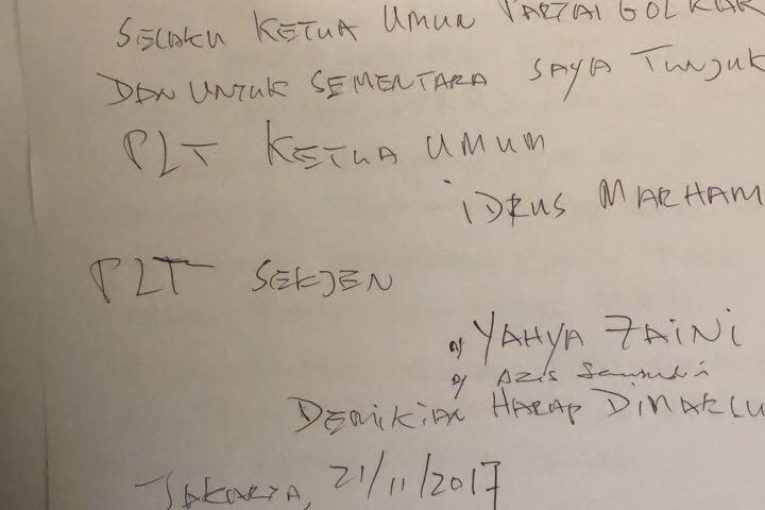 SELAKU KETUA UMUM PARTAI GOLKAR
DAN UNTUK SEMENTARA SAYA TUNJUK
PLT KETUA UMUM
IDRUS MARHAM
PLT SEKJEN
YAHYA ZAINI
AZIS Samsudi
DEMIKIAN HARAP DIMAKLU
JAKARTA, 21/11/2017